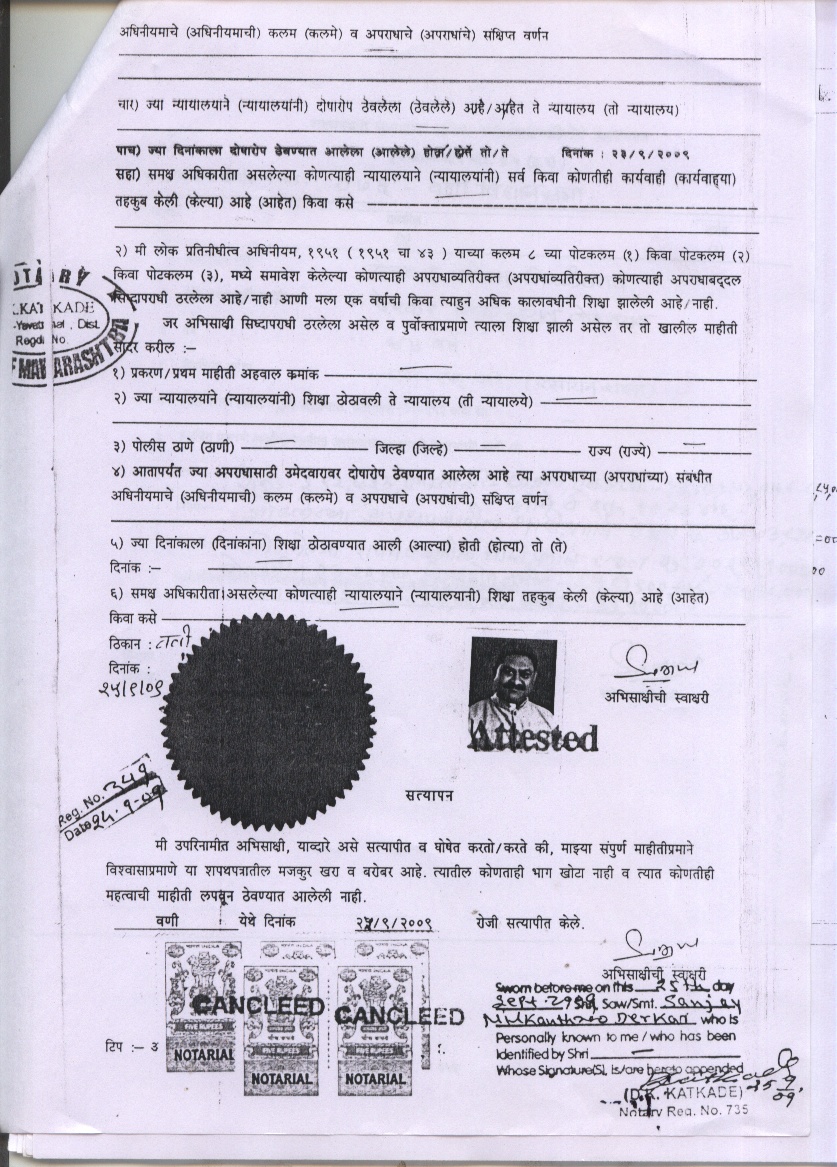 अधिनीयमाचे (अधिनीयमाची) कलम (कलमे) व अपराधाचे (अपराधांचे) संक्षिप्त वर्णन
चार) ज्या न्यायालयाने (न्यायालयांनी) दोषारोप ठेवलेला (ठेवलेले) आहे/आहेत ते न्यायालय (तो न्यायालय)
पाच) ज्या दिनांकाला दोषारोप ठेवण्यात आलेला (आलेले) होता/होते तो/ते दिनांक : २३/९/२००९
सहा) समक्ष अधिकारीता असलेल्या कोणत्याही न्यायालयाने (न्यायालयांनी) सर्व किवा कोणतीही कार्यवाही (कार्यवाह्या)
तहकुब केली (केल्या) आहे (आहेत) किवा कसे
२) मी लोक प्रतिनीधीत्व अधिनीयम, १९५१ ( १९५१ चा ४३ ) याच्या कलम ८ च्या पोटकलम (१) किवा पोटकलम (२)
किवा पोटकलम (३), मध्ये समावेश केलेल्या कोणत्याही अपराधाव्यतिरीक्त (अपराधांव्यतिरीक्त) कोणत्याही अपराधाबद्दल
सिध्दापराधी ठरलेला आहे/नाही आणी मला एक वर्षाची किवा त्याहुन अधिक कालावधीनी शिक्षा झालेली आहे/नाही.
जर अभिसाक्षी सिध्दापराधी ठरलेला असेल व पुर्वोक्ताप्रमाणे त्याला शिक्षा झाली असेल तर तो खालील माहीती
सादर करील :–
१) प्रकरण/प्रथम माहीती अहवाल क्रमांक
२) ज्या न्यायालयाने (न्यायालयांनी) शिक्षा ठोठावली ते न्यायालय (ती न्यायालये)
३) पोलीस ठाणे (ठाणी) जिल्हा (जिल्हे) राज्य (राज्ये)
४) आतापर्यत ज्या अपराधासाठी उमेदवारावर दोषारोप ठेवण्यात आलेला आहे त्या अपराधाच्या (अपराधांच्या) संबंधीत
अधिनीयमाचे (अधिनीयमाची) कलम (कलमे) व अपराधाचे (अपराधांची) संक्षिप्त वर्णन
५) ज्या दिनांकाला (दिनांकांना) शिक्षा ठोठावण्यात आली (आल्या) होती (होत्या) तो (ते)
दिनांक :–
६) समक्ष अधिकारीता असलेल्या कोणत्याही न्यायालयाने (न्यायालयानी) शिक्षा तहकुब केली (केल्या) आहे (आहेत)
किवा कसे
ठिकान : वणी
दिनांक :
२५/९/०९
अभिसाक्षीची स्वाक्षरी
Attested
Reg. No. 349
Date 24-9-09
सत्यापन
मी उपरिनामीत अभिसाक्षी, याव्दारे असे सत्यापीत व घोषेत करतो/करते की, माझ्या संपुर्ण माहीतीप्रमाने
विश्वासाप्रमाणे या शपथपत्रातील मजकुर खरा व बरोबर आहे. त्यातील कोणताही भाग खोटा नाही व त्यात कोणतीही
महत्वाची माहीती लपवून ठेवण्यात आलेली नाही.
वणी येथे दिनांक २५/९/२००९ रोजी सत्यापीत केले.
अभिसाक्षीची स्वाक्षरी
CANCLEED CANCLEED
FIVE RUPEES
NOTARIAL NOTARIAL NOTARIAL
टिप :–
Sworn before me on this 25th day
Sept. 2009 Shri, Sow/Smt. Sanjay
Nilkanthrao Derkar who is
Personally known to me / who has been
Identified by Shri
Whose Signature(S), is/are hereto appended
(D.K. KATKADE)
Notary Reg. No. 735